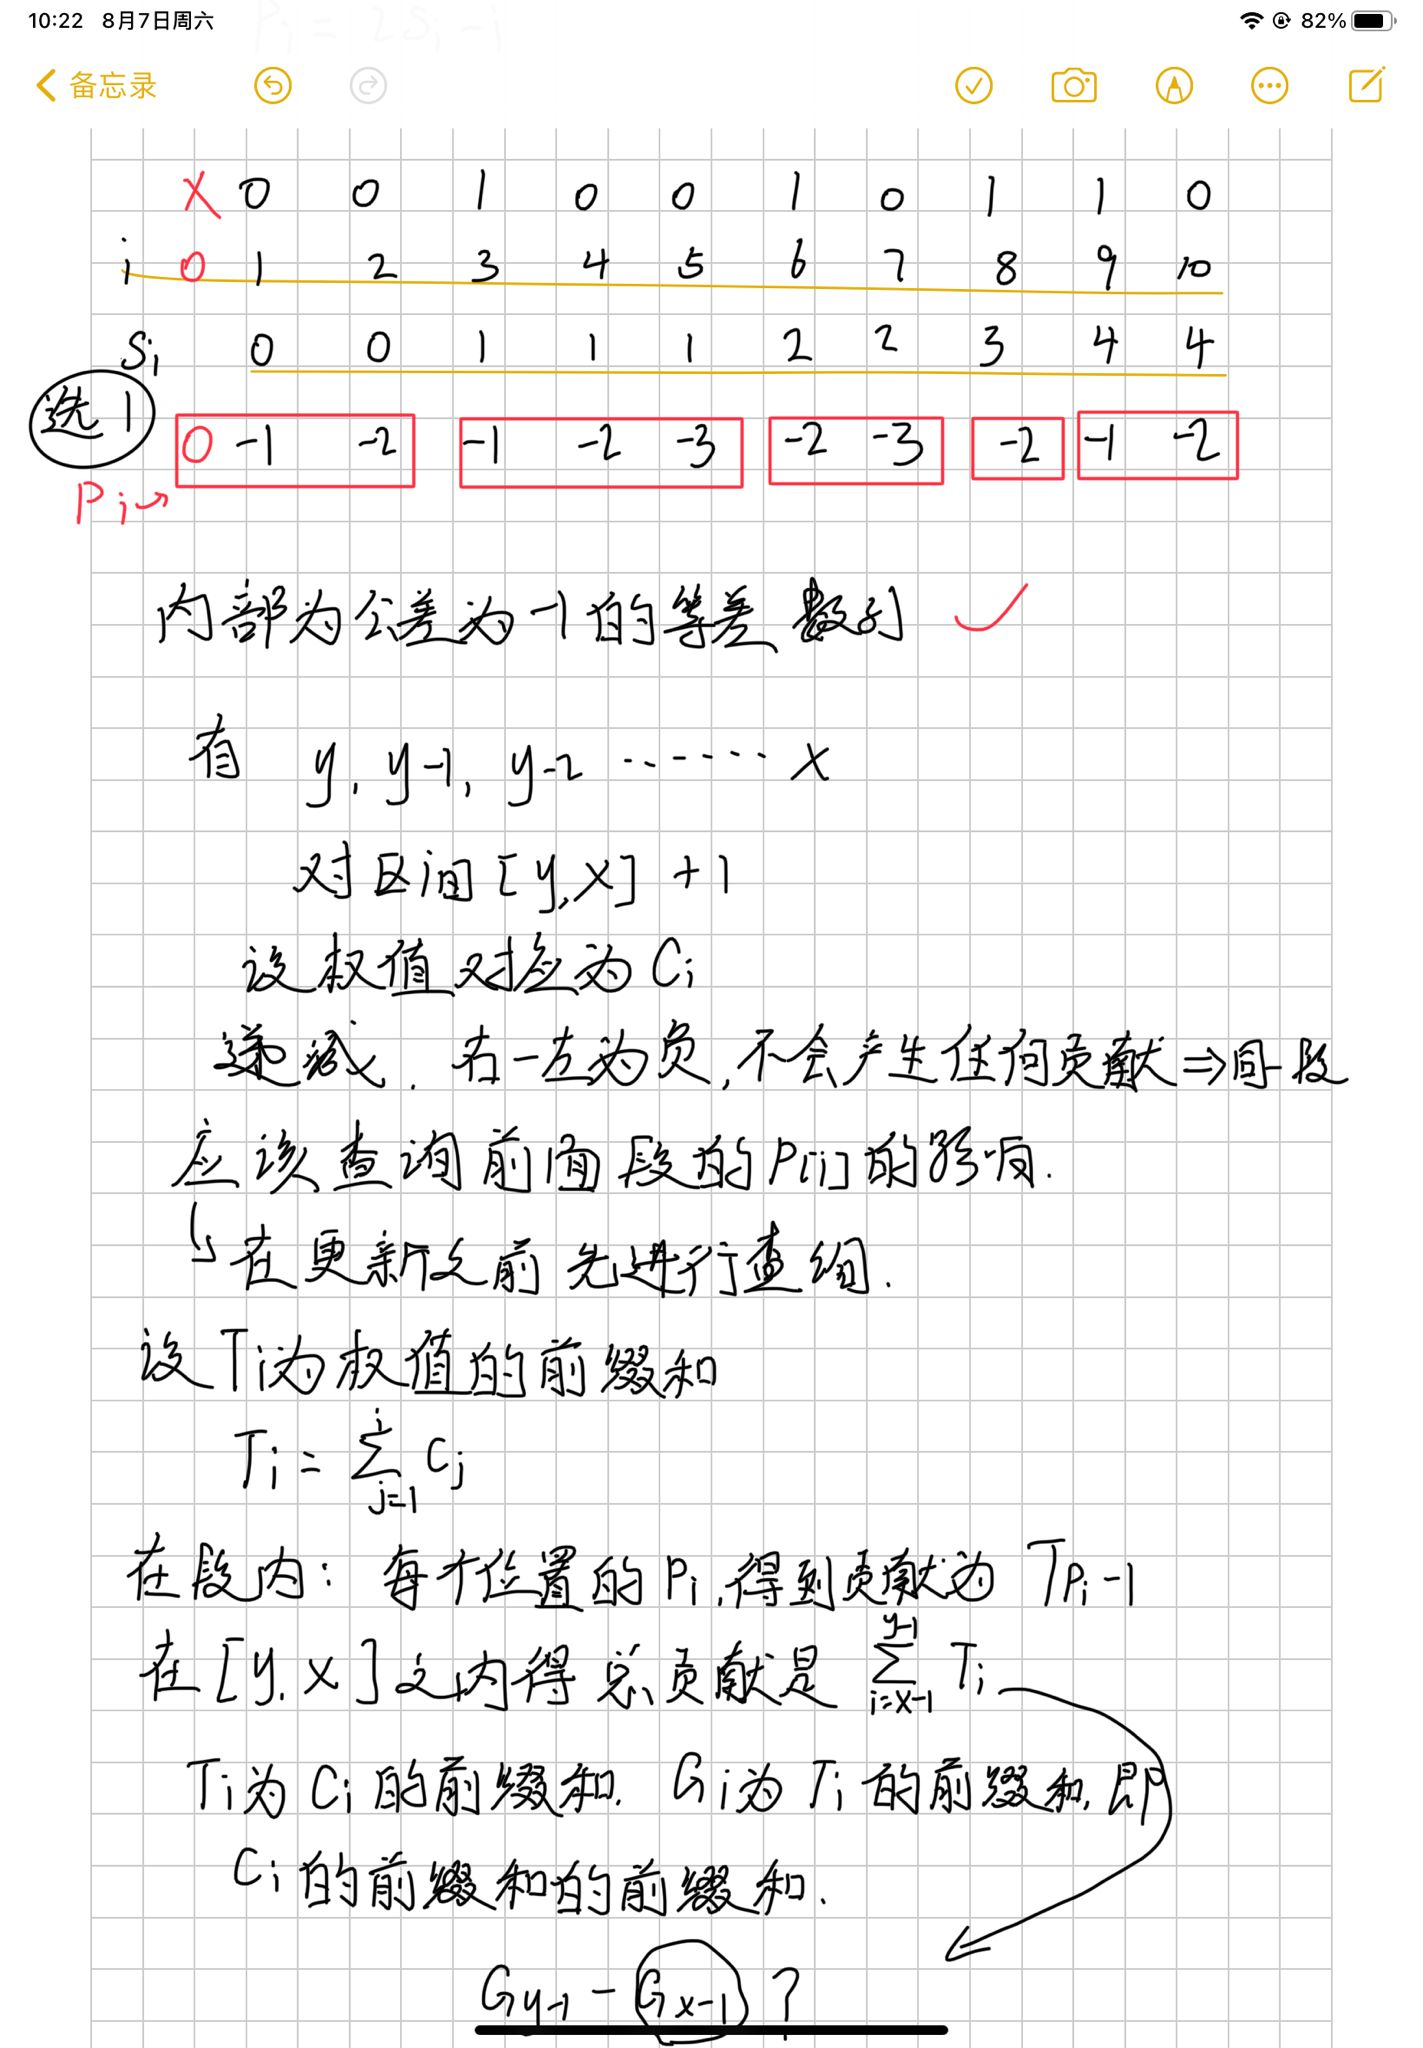 10:22 8月7日周六
82%
Pi = 2Si - i
备忘录
X 0 0 1 0 0 1 0 1 1 0
i 0 1 2 3 4 5 6 7 8 9 10
Si 0 0 1 1 1 2 2 3 4 4
选1
0 -1 -2 -1 -2 -3 -2 -3 -2 -1 -2
Pi→
内部为公差为-1的等差数列 ✓
有 y, y-1, y-2 ······ x
对区间[y,x] +1
设权值对应为Ci
递减. 右-左为负,不会产生任何贡献⇒同一段
应该查询前面段的P[i]的影响.
↳在更新之前先进行查询.
设Ti为权值的前缀和
Ti = ∑_{j=1}^{i} Cj
在段内: 每个位置的Pi,得到贡献为 T_{Pi-1}
在[y,x]之内得总贡献是 ∑_{i=x-1}^{y-1} Ti
Ti为Ci的前缀和. Gi为Ti的前缀和,即
Ci的前缀和的前缀和.
G_{y-1} - G_{x-1} ?